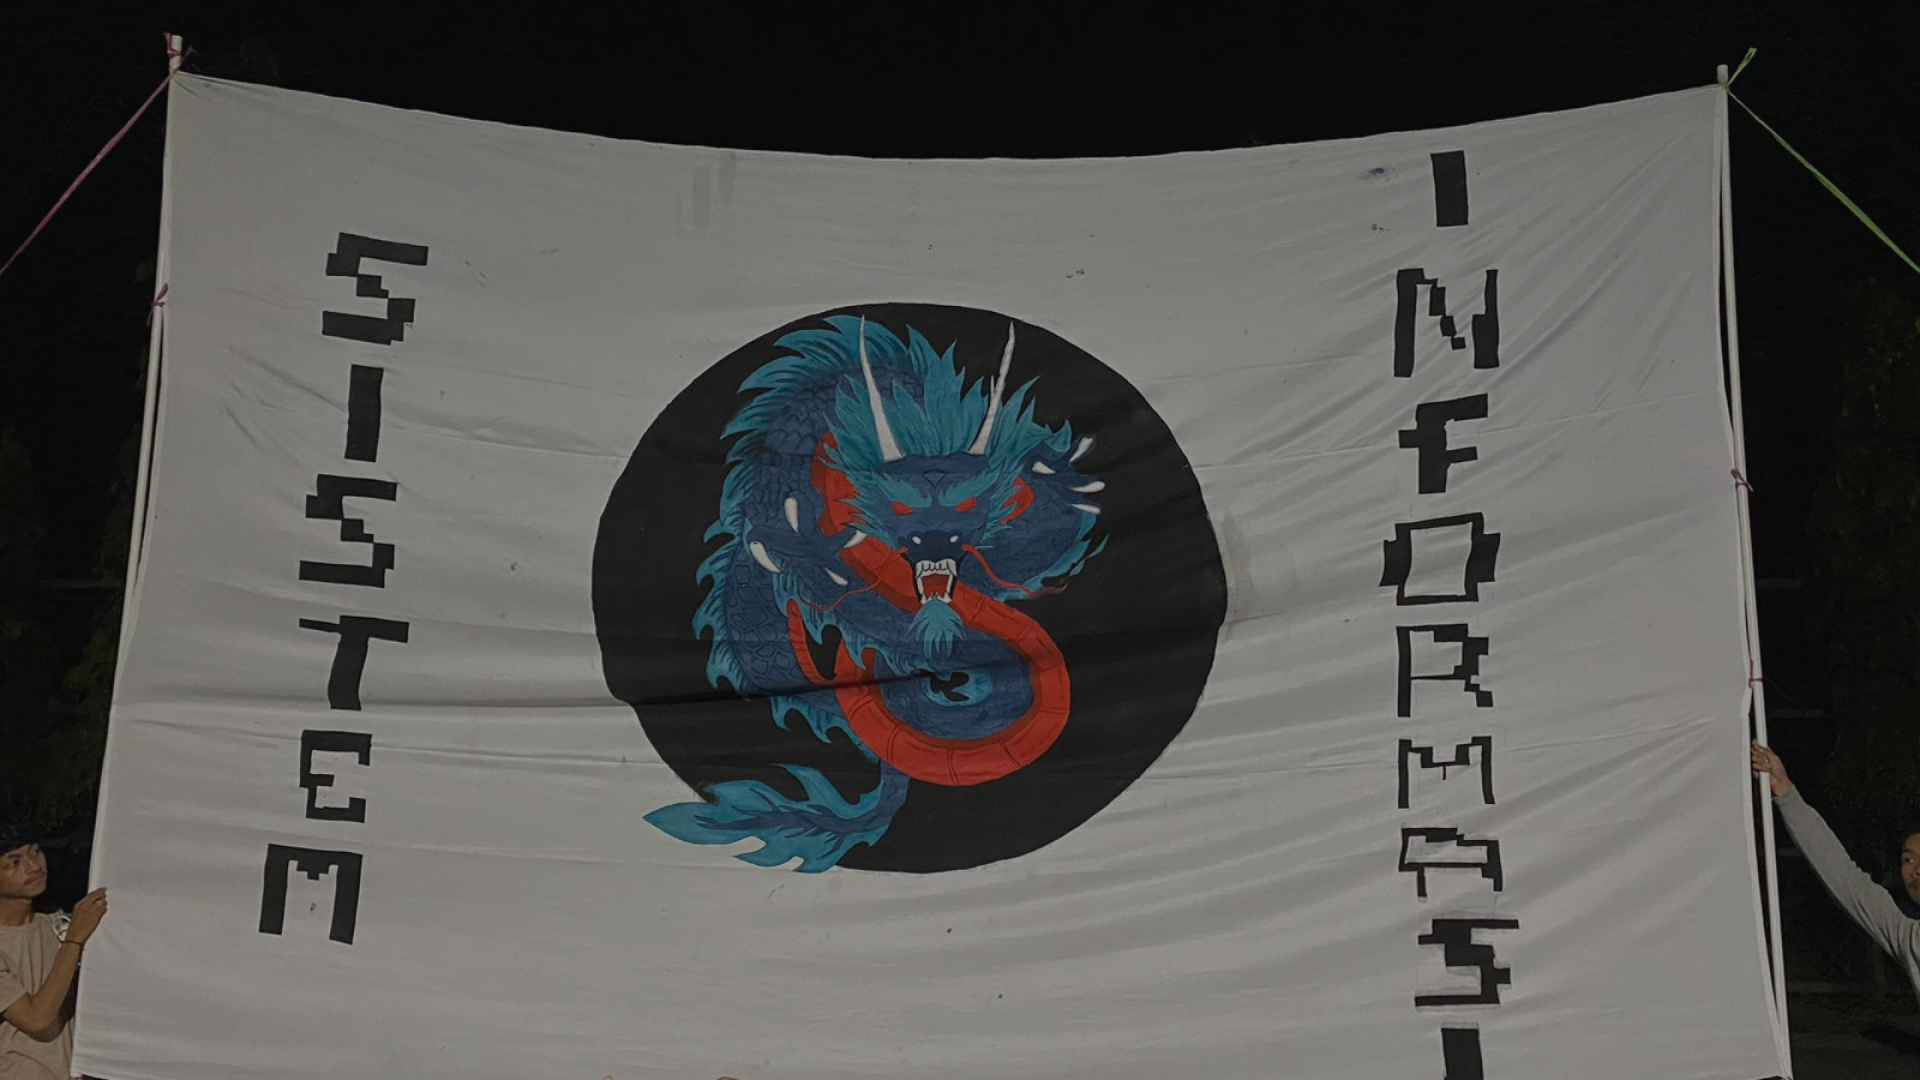 SISTEM
INFORMASI